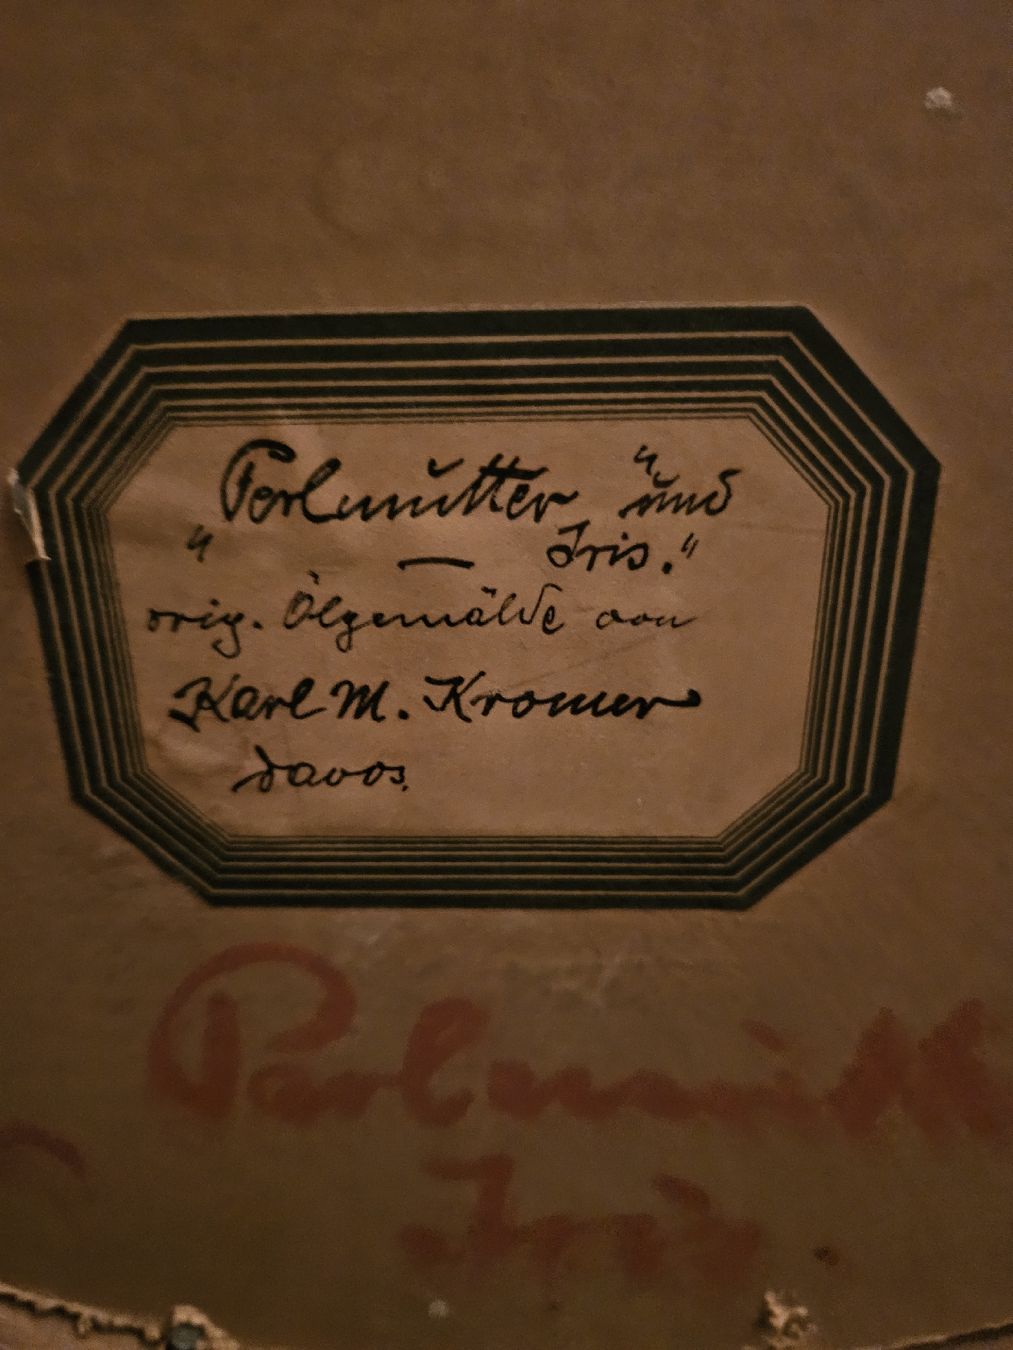 Perlmutter " und
" — Iris."
orig. Ölgemälde von
Karl M. Kromer
Davos.
Perlmutt
Iris.